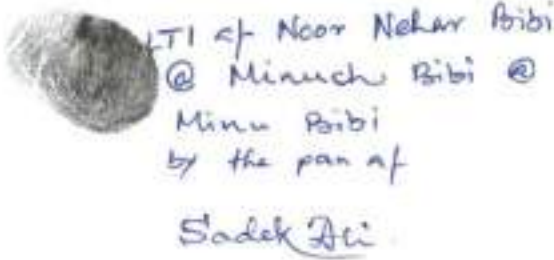 LTI of Noor Nehar Bibi
@ Minuch Bibi @
Minu Bibi
by the pan of
Sadek Ali